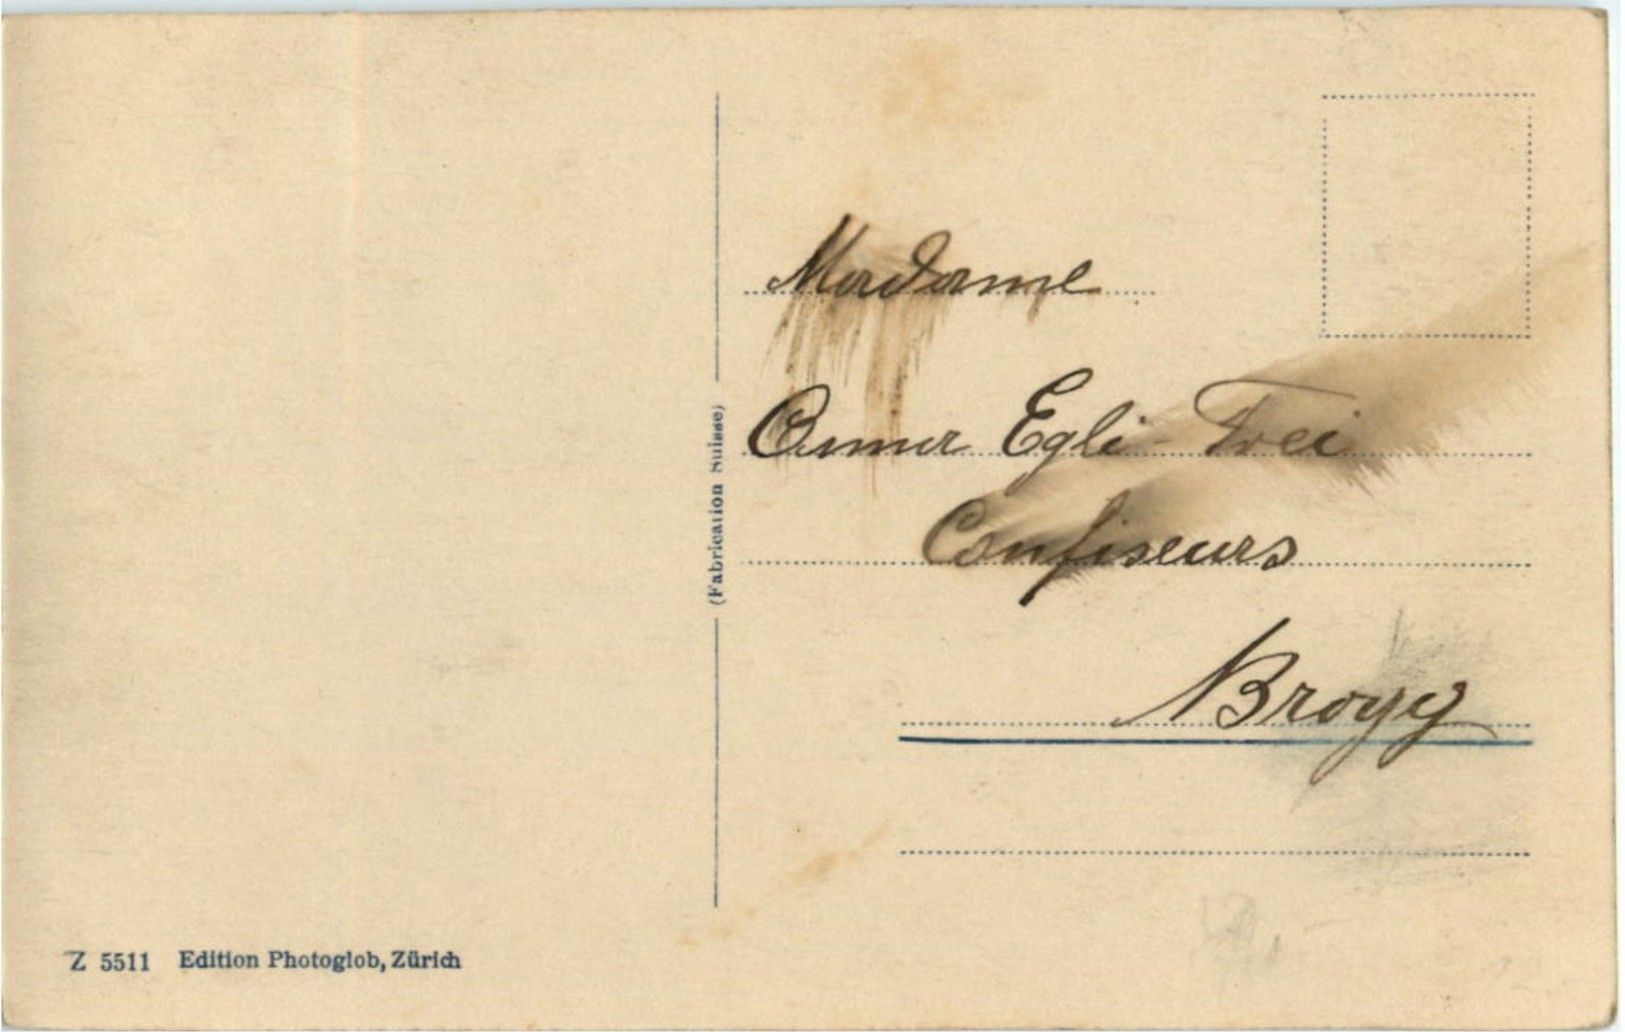 Madame
Anna Egli-Frei
Confiseurs
(Fabrication Suisse)
Z 5511 Edition Photoglob, Zürich